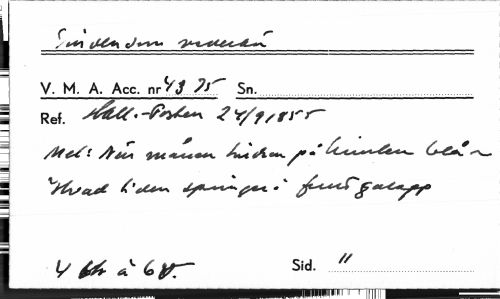 V. M. A. Acc. nr 4375 Sn.
Ref. Hall.-Posten 24/9 1855
Mel: När månen tindrar på himlen blå
Hvad tiden springer i galopp
4 str à 6 v. Sid. "